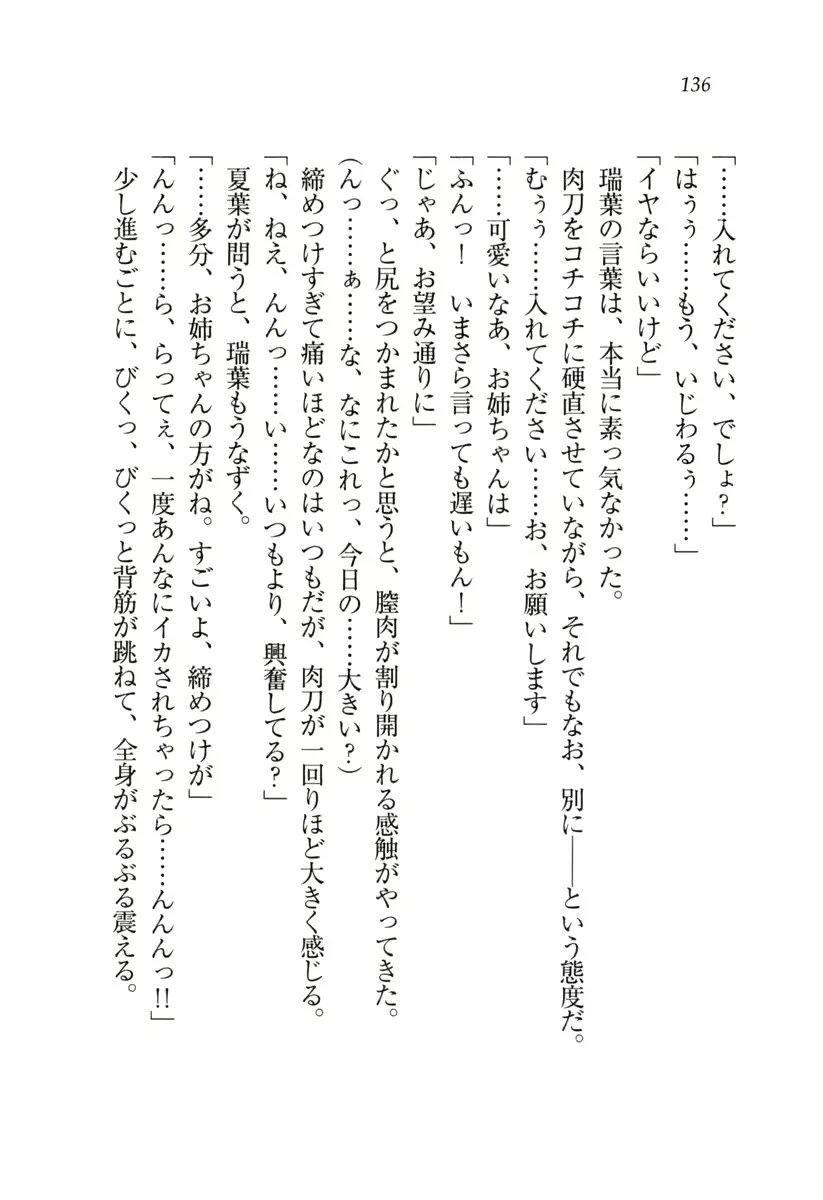 136
「……入れてください、でしょ?」
「はぅぅ……もう、いじわるぅ……」
「イヤならいいけど」
瑞葉の言葉は、本当に素っ気なかった。
肉刀をコチコチに硬直させていながら、それでもなお、別に――という態度だ。
「むぅぅ……入れてください……お、お願いします」
「……可愛いなあ、お姉ちゃんは」
「ふんっ! いまさら言っても遅いもん!」
「じゃあ、お望み通りに」
ぐっ、と尻をつかまれたかと思うと、膣肉が割り開かれる感触がやってきた。
(んっ……ぁ……な、なにこれっ、今日の……大きい?)
締めつけすぎて痛いほどなのはいつもだが、肉刀が一回りほど大きく感じる。
「ね、ねえ、んんっ……い……いつもより、興奮してる?」
夏葉が問うと、瑞葉もうなずく。
「……多分、お姉ちゃんの方がね。すごいよ、締めつけが」
「んんっ……ら、らってぇ、一度あんなにイカされちゃったら……んんんっ!!」
少し進むごとに、びくっ、びくっと背筋が跳ねて、全身がぶるぶる震える。